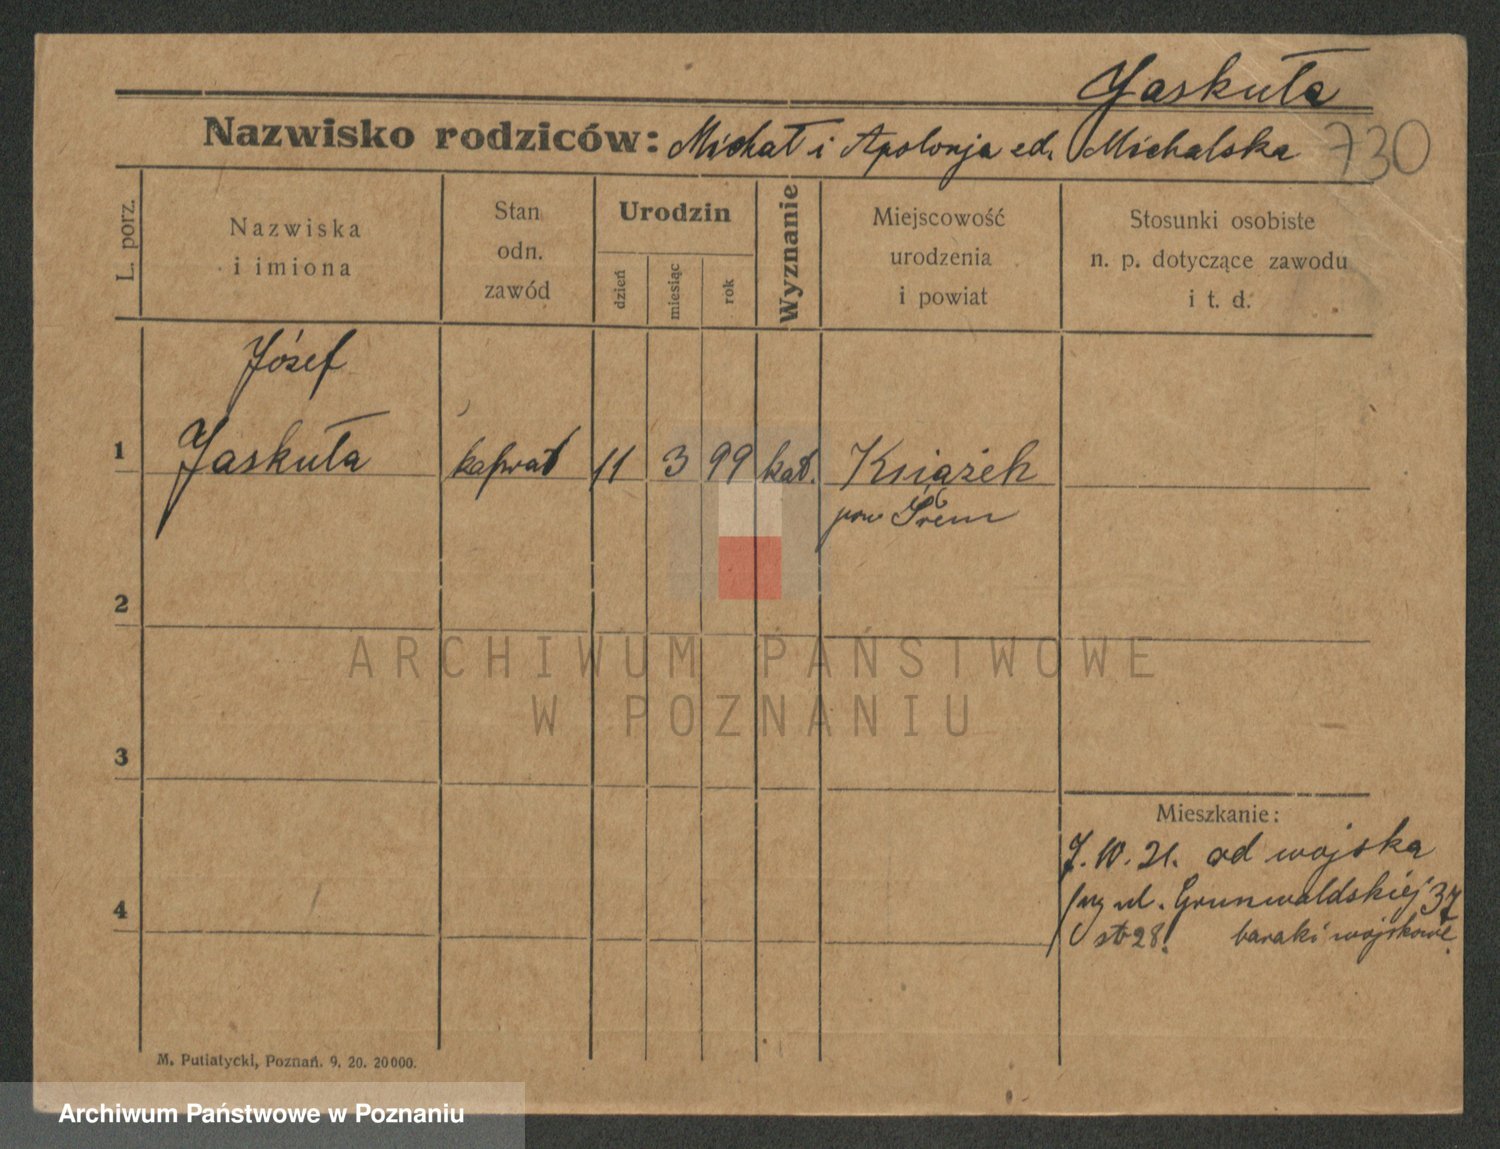 Jaskuła
Nazwisko rodziców: Michał i Apolonja ed. Michalska 730
L. porz.
Nazwiska
i imiona
Stan
odn.
zawód
Urodzin
dzień
miesiąc
rok
Wyznanie
Miejscowość
urodzenia
i powiat
Stosunki osobiste
n. p. dotyczące zawodu
i t. d.
Józef
1 Jaskuła kapral 11 3 99 kat. Książek
pow Śrem
2
3
4
Mieszkanie:
7. 10. 21. od wojska
ul. Grunwaldskiej 37
st 28. baraki wojskowe.
M. Putiatycki, Poznań. 9. 20. 20000.
ARCHIWUM PAŃSTWOWE
W POZNANIU
Archiwum Państwowe w Poznaniu